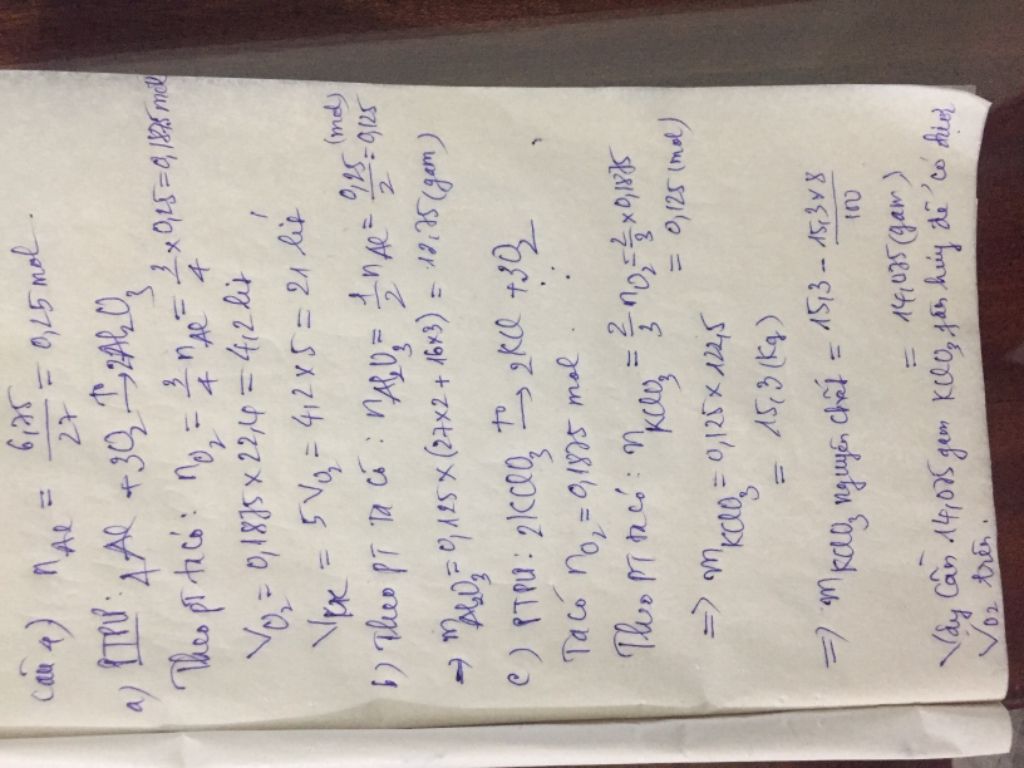 Câu 4) n_Al = 6,75/27 = 0,25 mol.
a) PTPƯ: 4Al + 3O₂ →(t°) 2Al₂O₃
Theo pt ta có: n_O₂ = 3/4 n_Al = 3/4 x 0,25 = 0,1875 mol
V_O₂ = 0,1875 x 22,4 = 4,2 lít
V_KK = 5 V_O₂ = 4,2 x 5 = 21 lít
b) Theo PT Ta có: n_Al₂O₃ = 1/2 n_Al = 0,25/2 = 0,125 (mol)
→ m_Al₂O₃ = 0,125 x (27x2 + 16x3) = 12,75 (gam)
c) PTPƯ: 2KClO₃ →(t°) 2KCl + 3O₂
Ta có n_O₂ = 0,1875 mol
Theo PT ta có: n_KClO₃ = 2/3 n_O₂ = 2/3 x 0,1875
= 0,125 (mol)
=> m_KClO₃ = 0,125 x 122,5
= 15,3 (Kg)
=> m_KClO₃ nguyên chất = 15,3 - 15,3 x 8/100
= 14,075 (gam)
Vậy cần 14,075 gam KClO₃ để có được
V_O₂ trên.